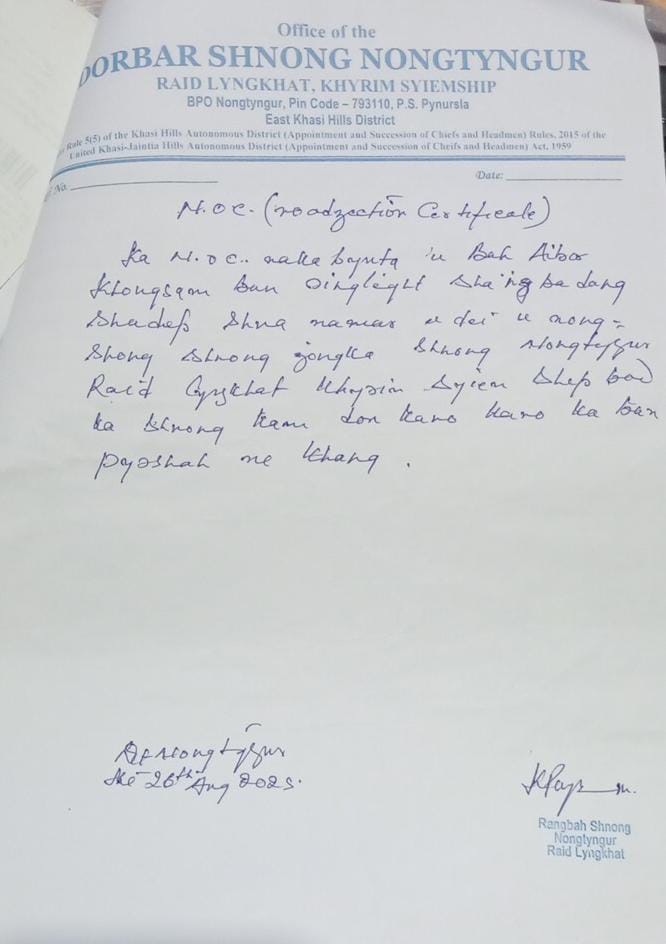 Office of the
DORBAR SHNONG NONGTYNGUR
RAID LYNGKHAT, KHYRIM SYIEMSHIP
BPO Nongtyngur, Pin Code – 793110, P.S. Pynursla
East Khasi Hills District
Rule 5(5) of the Khasi Hills Autonomous District (Appointment and Succession of Chiefs and Headmen) Rules, 2015 of the
United Khasi-Jaintia Hills Autonomous District (Appointment and Succession of Cheifs and Headmen) Act, 1959
No.
Date:
N.O.C. (noadzection Certificate)
Ka N.O.C. naka bynta u Bah Aibor
Khongsam ban shaing ba dang
Shadep Shna namar u dei u nong=
Shong Shnong jongka Shnong Nongtyngur
Raid Lyngkhat Khyrim Syiem Shep bad
ka Shnong kam don kano kano ka ban
pyashah ne Khang.
Nongtyngur
the 26th Aug 2025.
Rangbah Shnong
Nongtyngur
Raid Lyngkhat